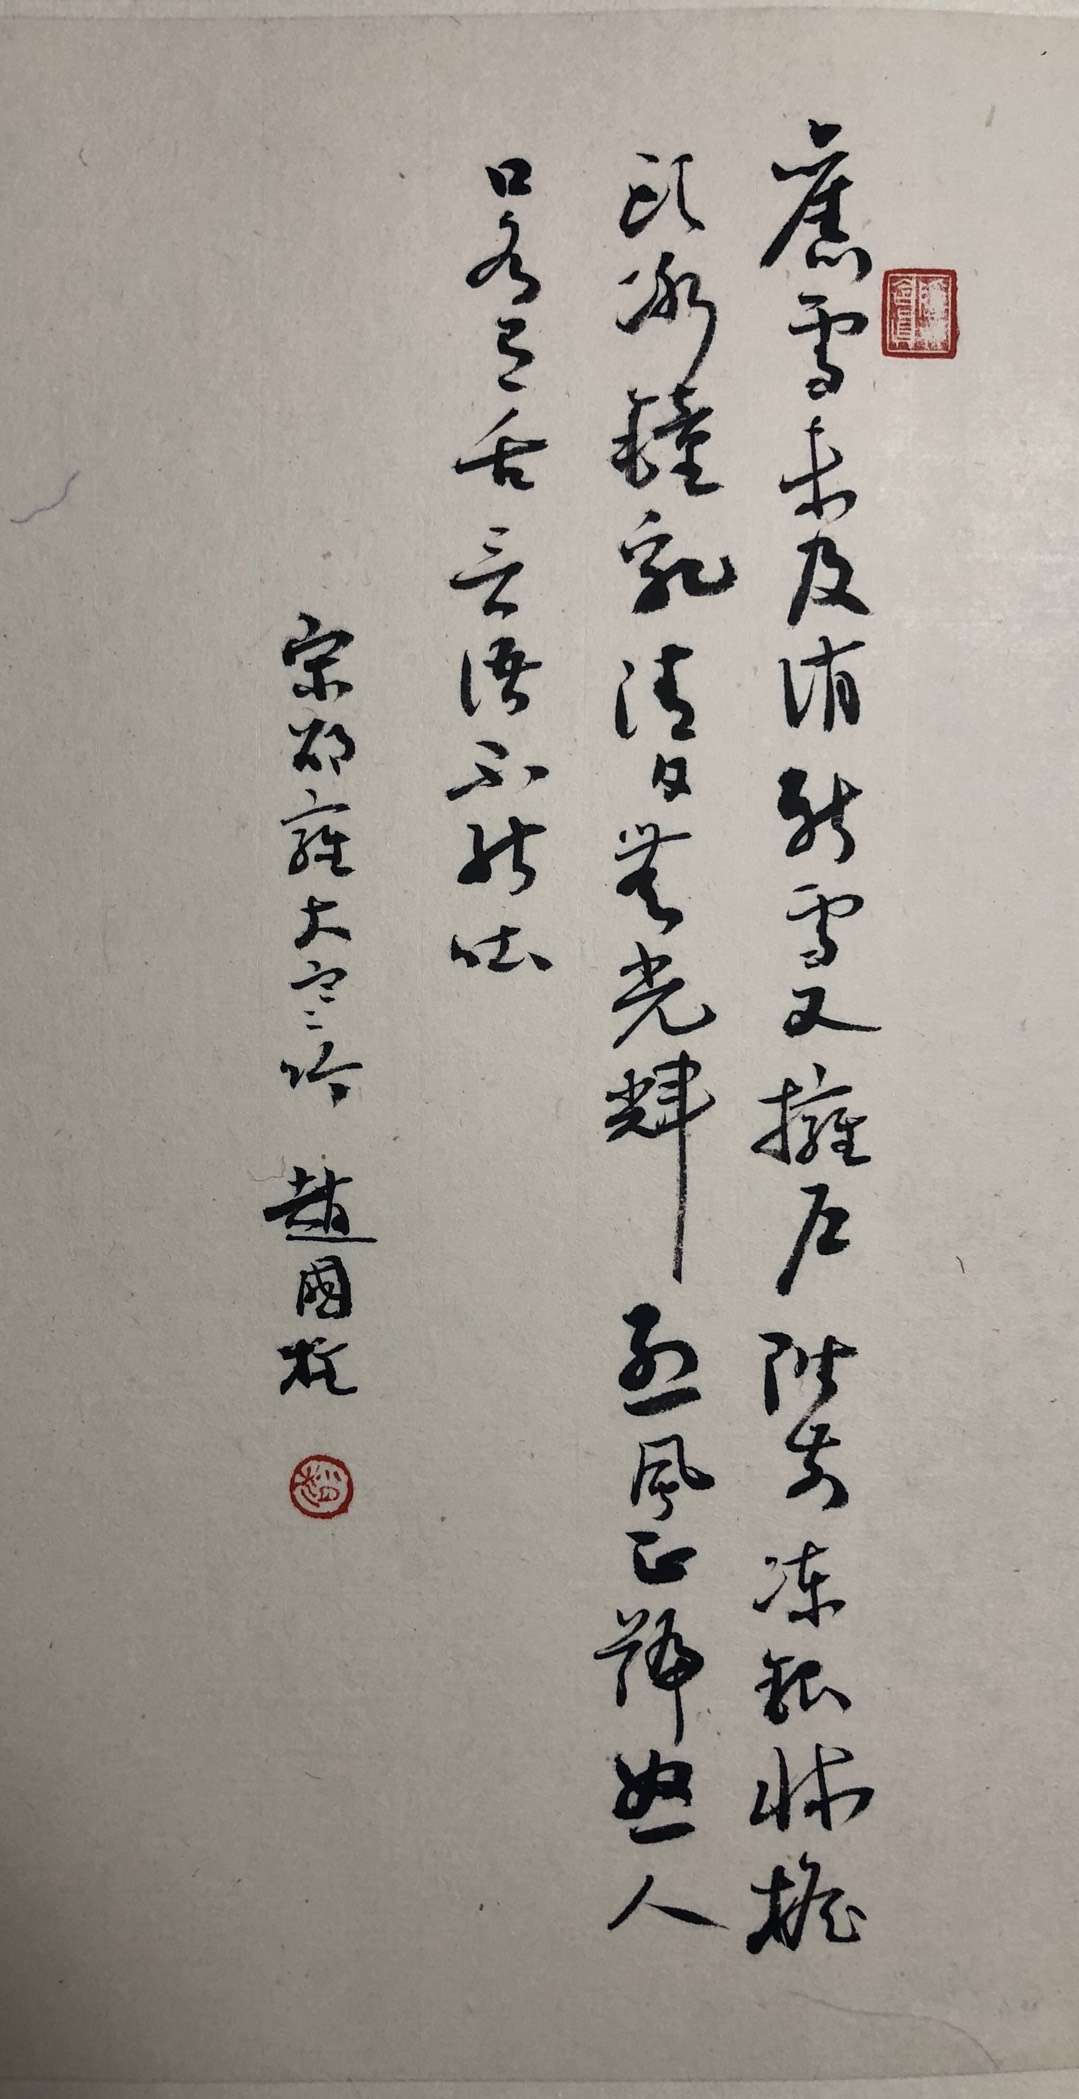 舊雪未及消新雪又擁戶階前凍銀牀檐
頭冰鐘乳清日無光輝烈風正號怒人
口各有舌言語不能吐
宋邵雍大寒吟 趙國柱